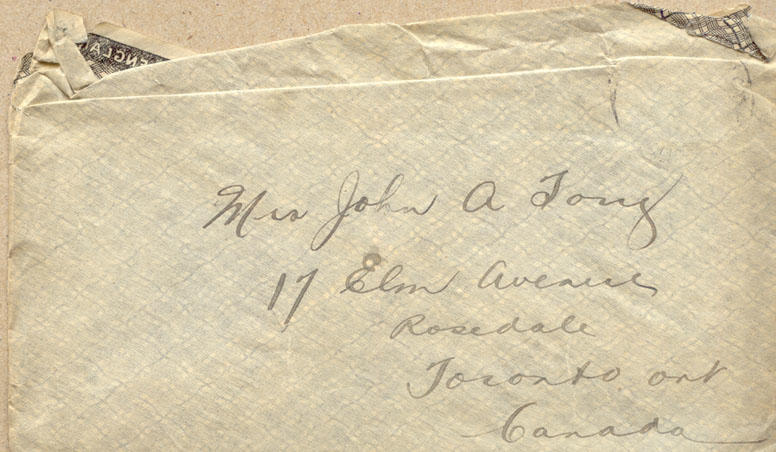 ENGLA
Mrs John A Tory
17 Elm Avenue
Rosedale
Toronto ont
Canada